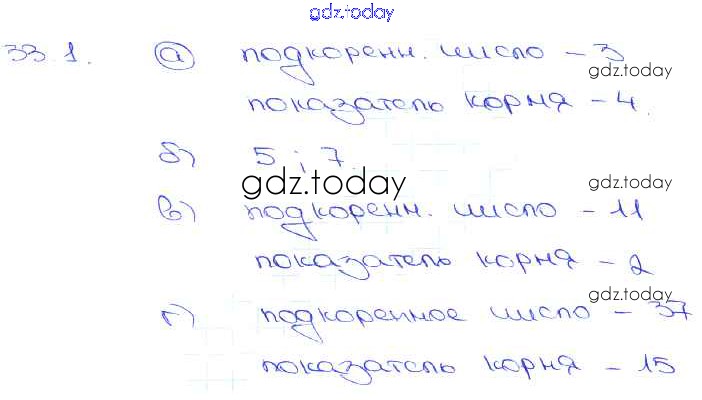 gdz.today
33.1. а) подкоренн. число - 3
gdz.today
показатель корня - 4.
б) 5 ; 7.
gdz.today
gdz.today
в) подкоренн. число - 11
показатель корня - 2
gdz.today
г) подкоренное число - 37
показатель корня - 15